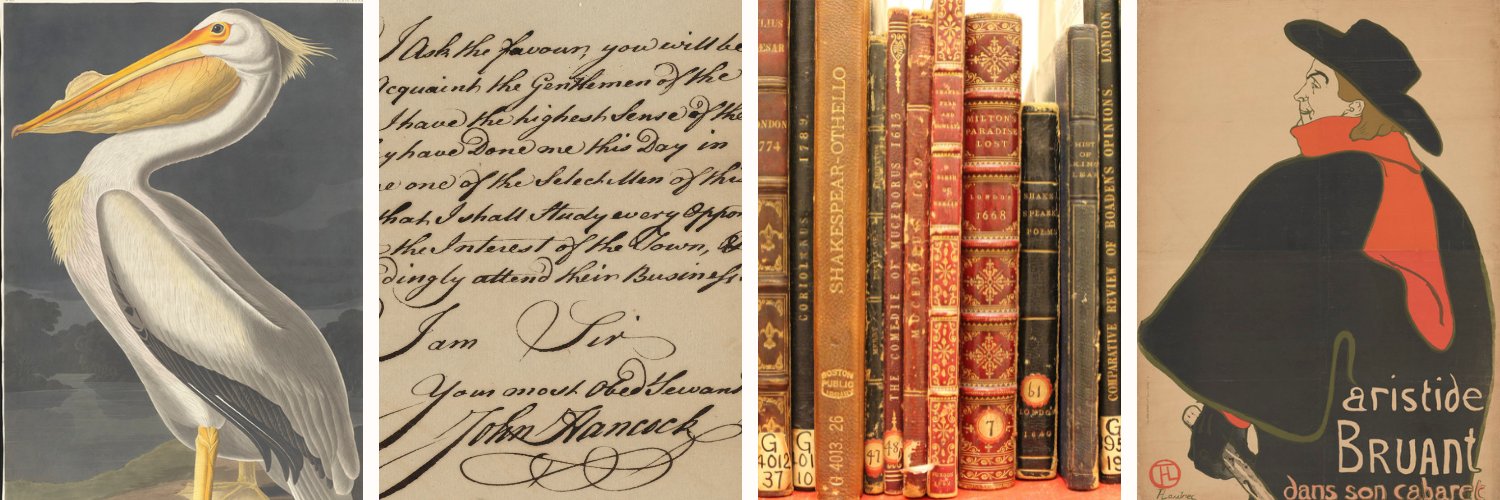 I Ask the favour, you will be
acquaint the Gentlemen of the
I have the highest Sense of the
y have Done me this Day in
one of the Select Men of this
that I shall Study every Oppor
the Interest of the Town, &
dingly attend their Business.
I am Sir
Your most Obed Servant
John Hancock
JULIUS
CAESAR
LONDON
1774
G
4012
37
CORIOLANUS. 1789.
G
401
10
SHAKESPEAR-OTHELLO
BOSTON
PUBLIC
LIBRARY
G 4013.26
47
THE COMEDIE OF MUCEDORUS 1613
48
MUCEDORUS 1619
MILTON'S
PARADISE
LOST
LONDON
1668
7
SHAKE
SPEARE
POEMS
61
LONDON
1640
HIST
OF
KING
LEAR
COMPARATIVE REVIEW OF BOADENS OPINIONS. LONDON
G
95
19
aristide
BRUANT
dans son cabaret
HTL